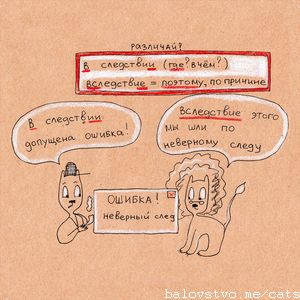 различай?
в следствии (где? в чём?)
вследствие = поэтому, по причине
В следствии
допущена ошибка!
Вследствие этого
мы шли по
неверному следу
ОШИБКА!
неверный след
balovstvo.me/cats